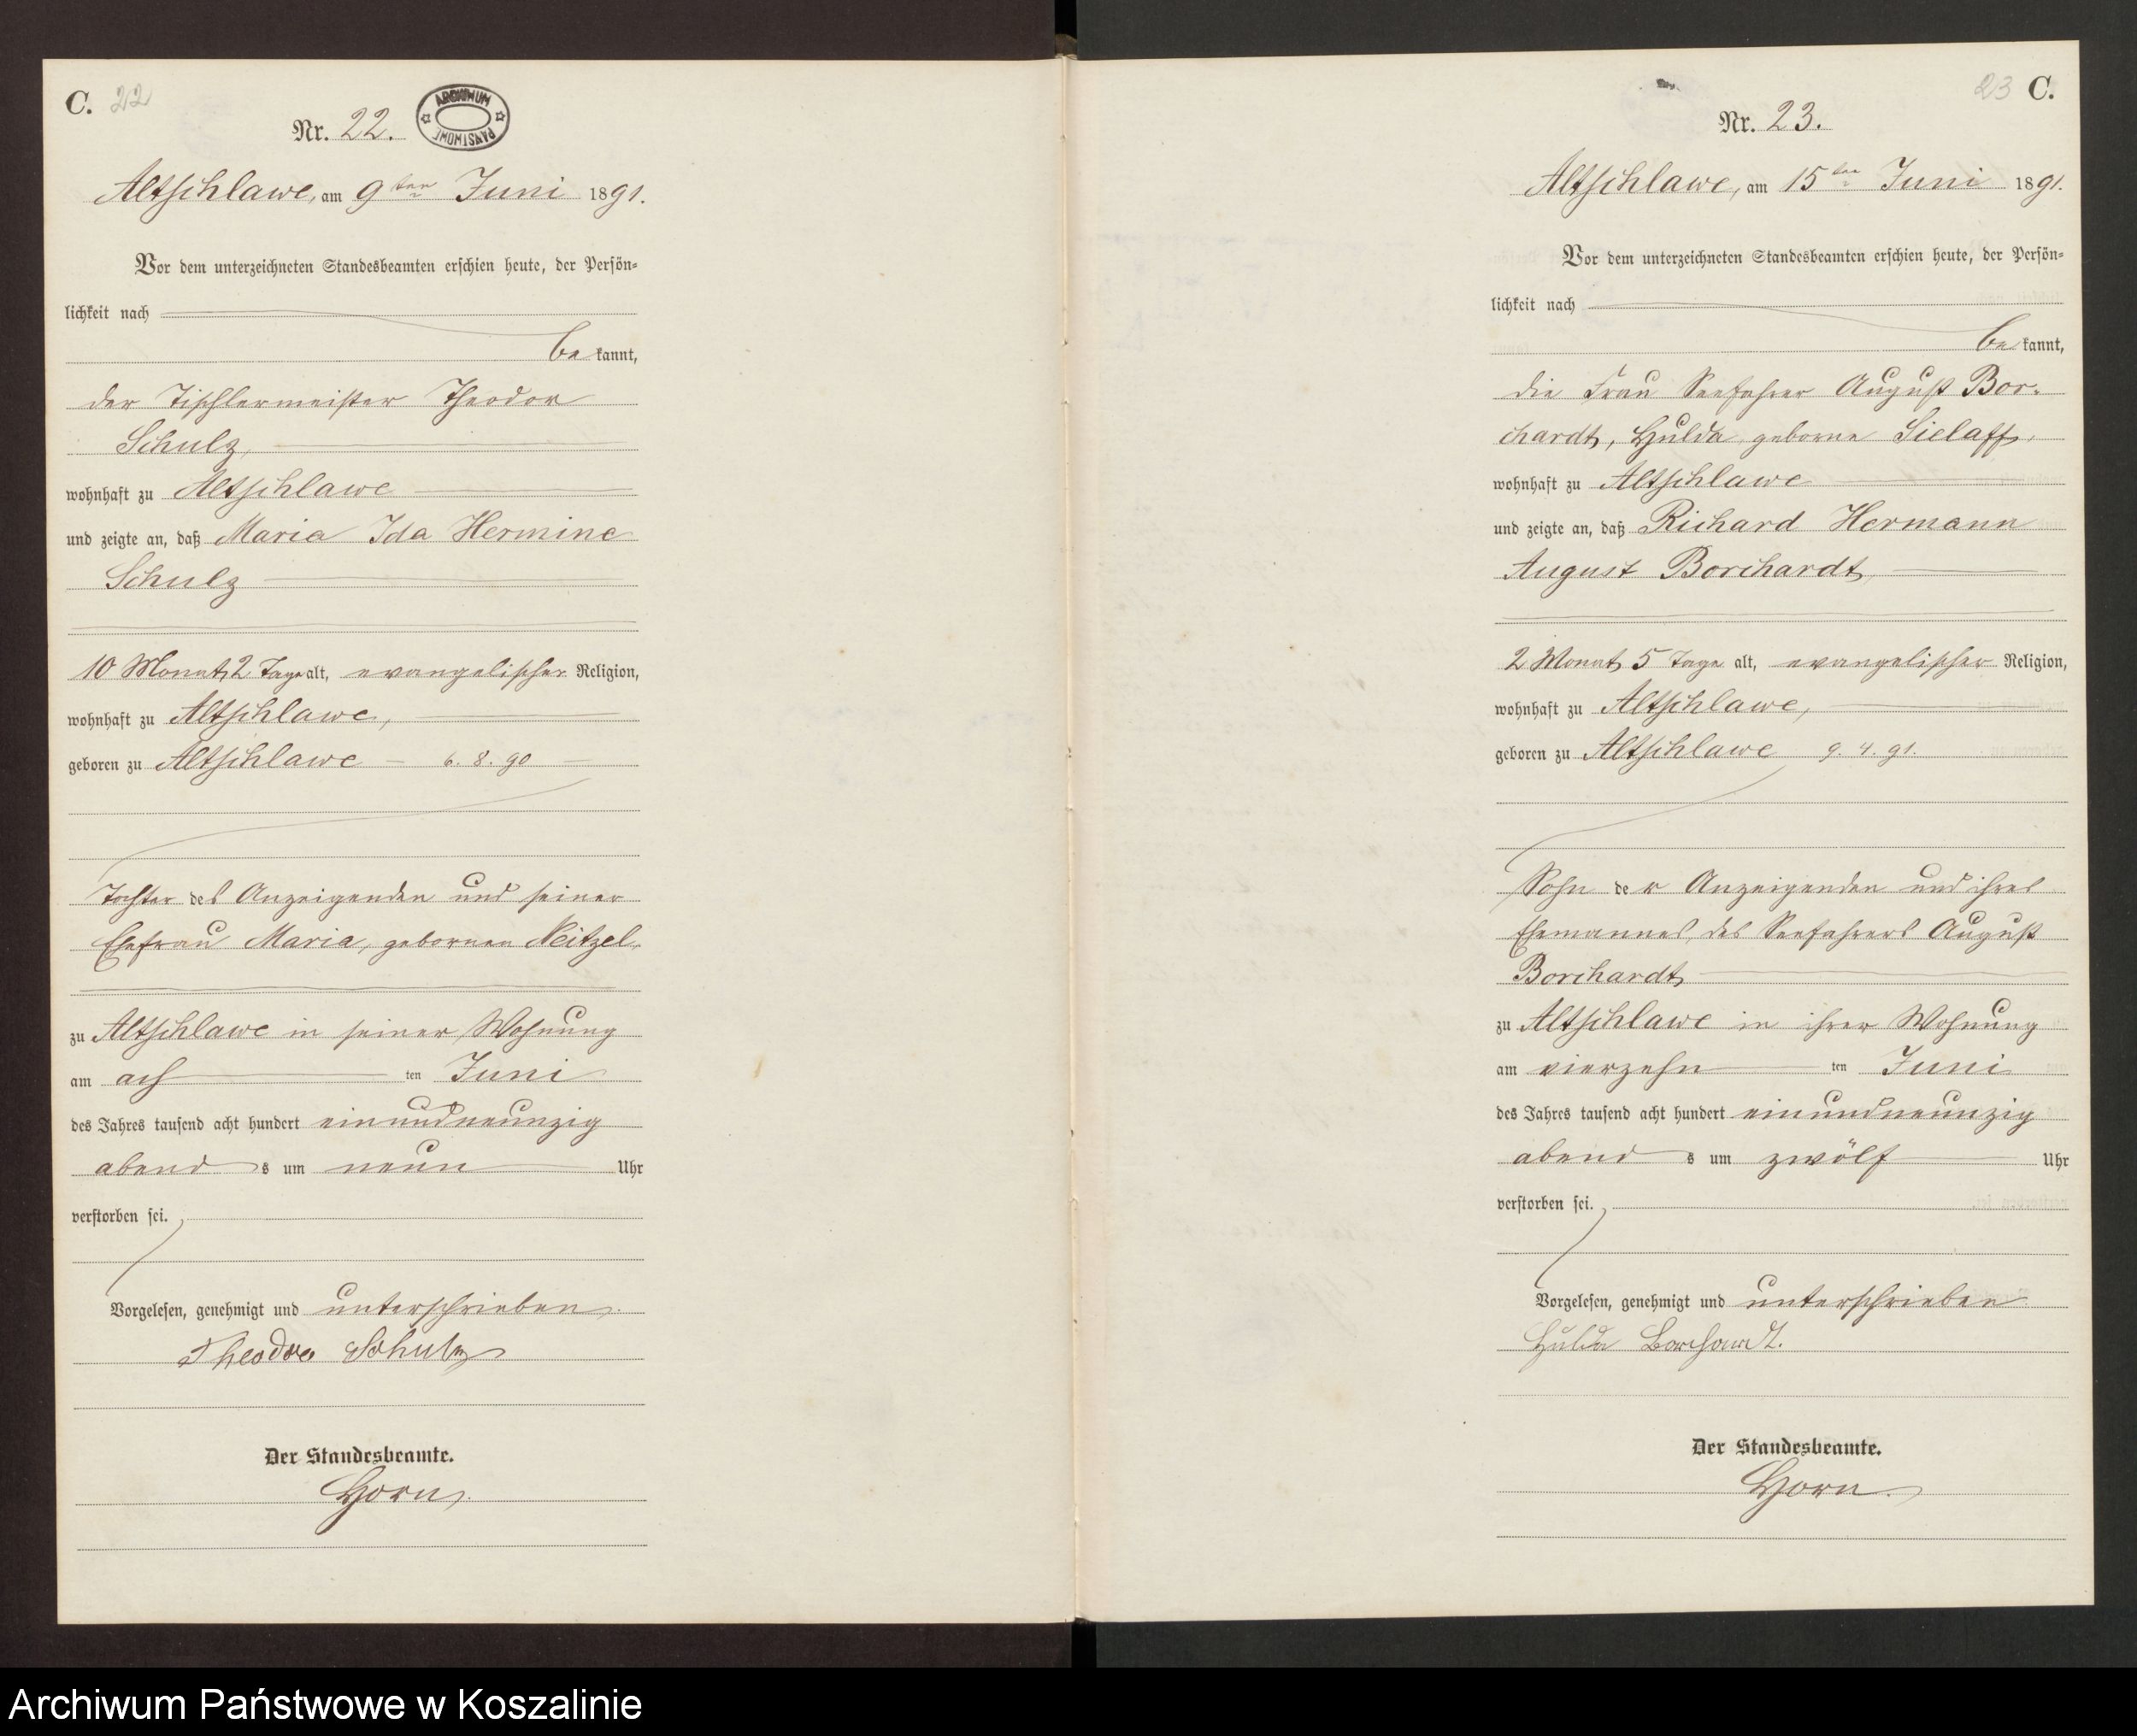 C. 22
Nr. 22.
ARCHIWUM PAŃSTWOWE
Altschlawe, am 9ten Juni 1891.
Vor dem unterzeichneten Standesbeamten erschien heute, der Persön-
lichkeit nach
bekannt,
der Tischlermeister Theodor
Schulz,
wohnhaft zu Altschlawe
und zeigte an, daß Maria Ida Hermine
Schulz
10 Monat, 2 Tage alt, evangelischer Religion,
wohnhaft zu Altschlawe,
geboren zu Altschlawe 6. 8. 90
Tochter des Anzeigenden und seiner
Ehefrau Maria, gebornen Neitzel,
zu Altschlawe in seiner Wohnung
am ach ten Juni
des Jahres tausend acht hundert einundneunzig
abends um neun Uhr
verstorben sei.
Vorgelesen, genehmigt und unterschrieben.
Theodor Schulz
Der Standesbeamte.
Horn.
23 C.
Nr. 23.
Altschlawe, am 15ten Juni 1891.
Vor dem unterzeichneten Standesbeamten erschien heute, der Persön-
lichkeit nach
bekannt,
die Frau Seefahrer August Bor-
chardt, Hulda, geborne Sielaff,
wohnhaft zu Altschlawe
und zeigte an, daß Richard Hermann
August Borchardt,
2 Monat, 5 Tage alt, evangelischer Religion,
wohnhaft zu Altschlawe,
geboren zu Altschlawe 9. 4. 91.
Sohn der Anzeigenden und ihres
Ehemannes, des Seefahrers August
Borchardt,
zu Altschlawe in ihrer Wohnung
am vierzehn ten Juni
des Jahres tausend acht hundert einundneunzig
abends um zwölf Uhr
verstorben sei.
Vorgelesen, genehmigt und unterschrieben
Hulda Borchardt.
Der Standesbeamte.
Horn.
Archiwum Państwowe w Koszalinie